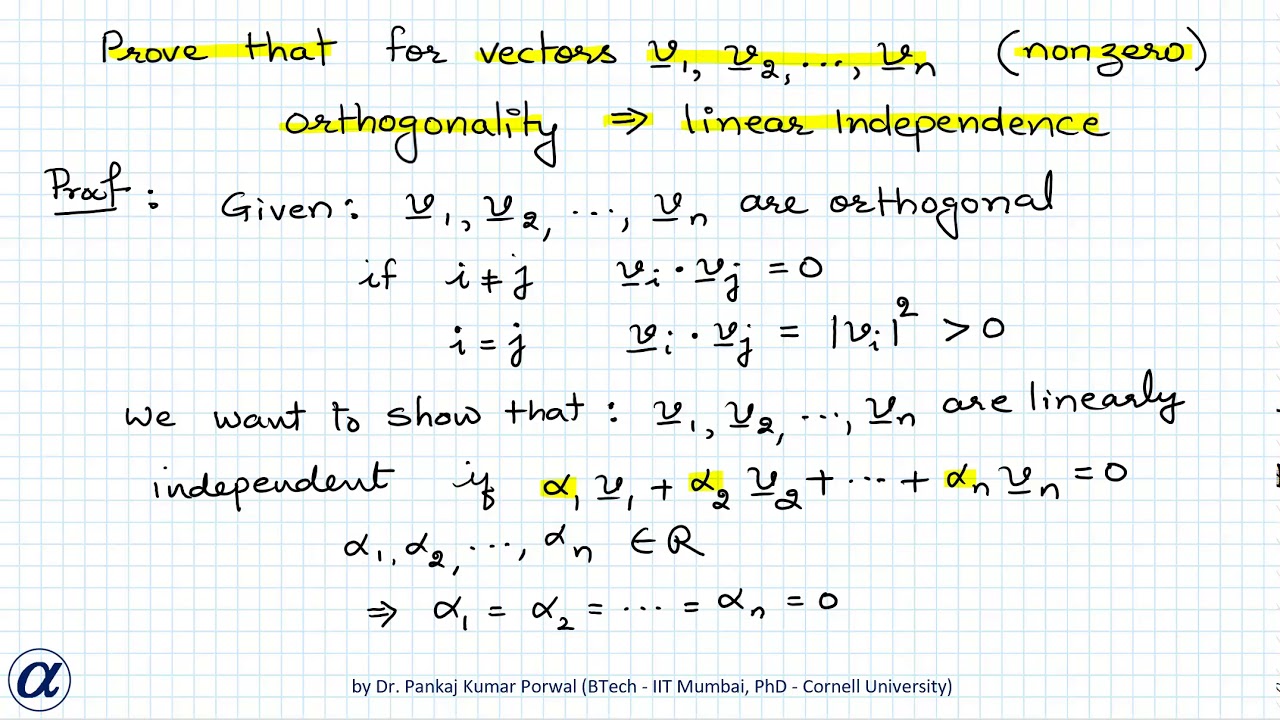 Prove that for vectors v₁, v₂, ..., vₙ (nonzero)
orthogonality ⇒ linear Independence
Proof : Given: v₁, v₂, ..., vₙ are orthogonal
if i ≠ j vᵢ · vⱼ = 0
i = j vᵢ · vⱼ = |vᵢ|² > 0
We want to show that : v₁, v₂, ..., vₙ are linearly
independent if α₁ v₁ + α₂ v₂ + ... + αₙ vₙ = 0
α₁, α₂, ..., αₙ ∈ R
⇒ α₁ = α₂ = ... = αₙ = 0
α
by Dr. Pankaj Kumar Porwal (BTech - IIT Mumbai, PhD - Cornell University)